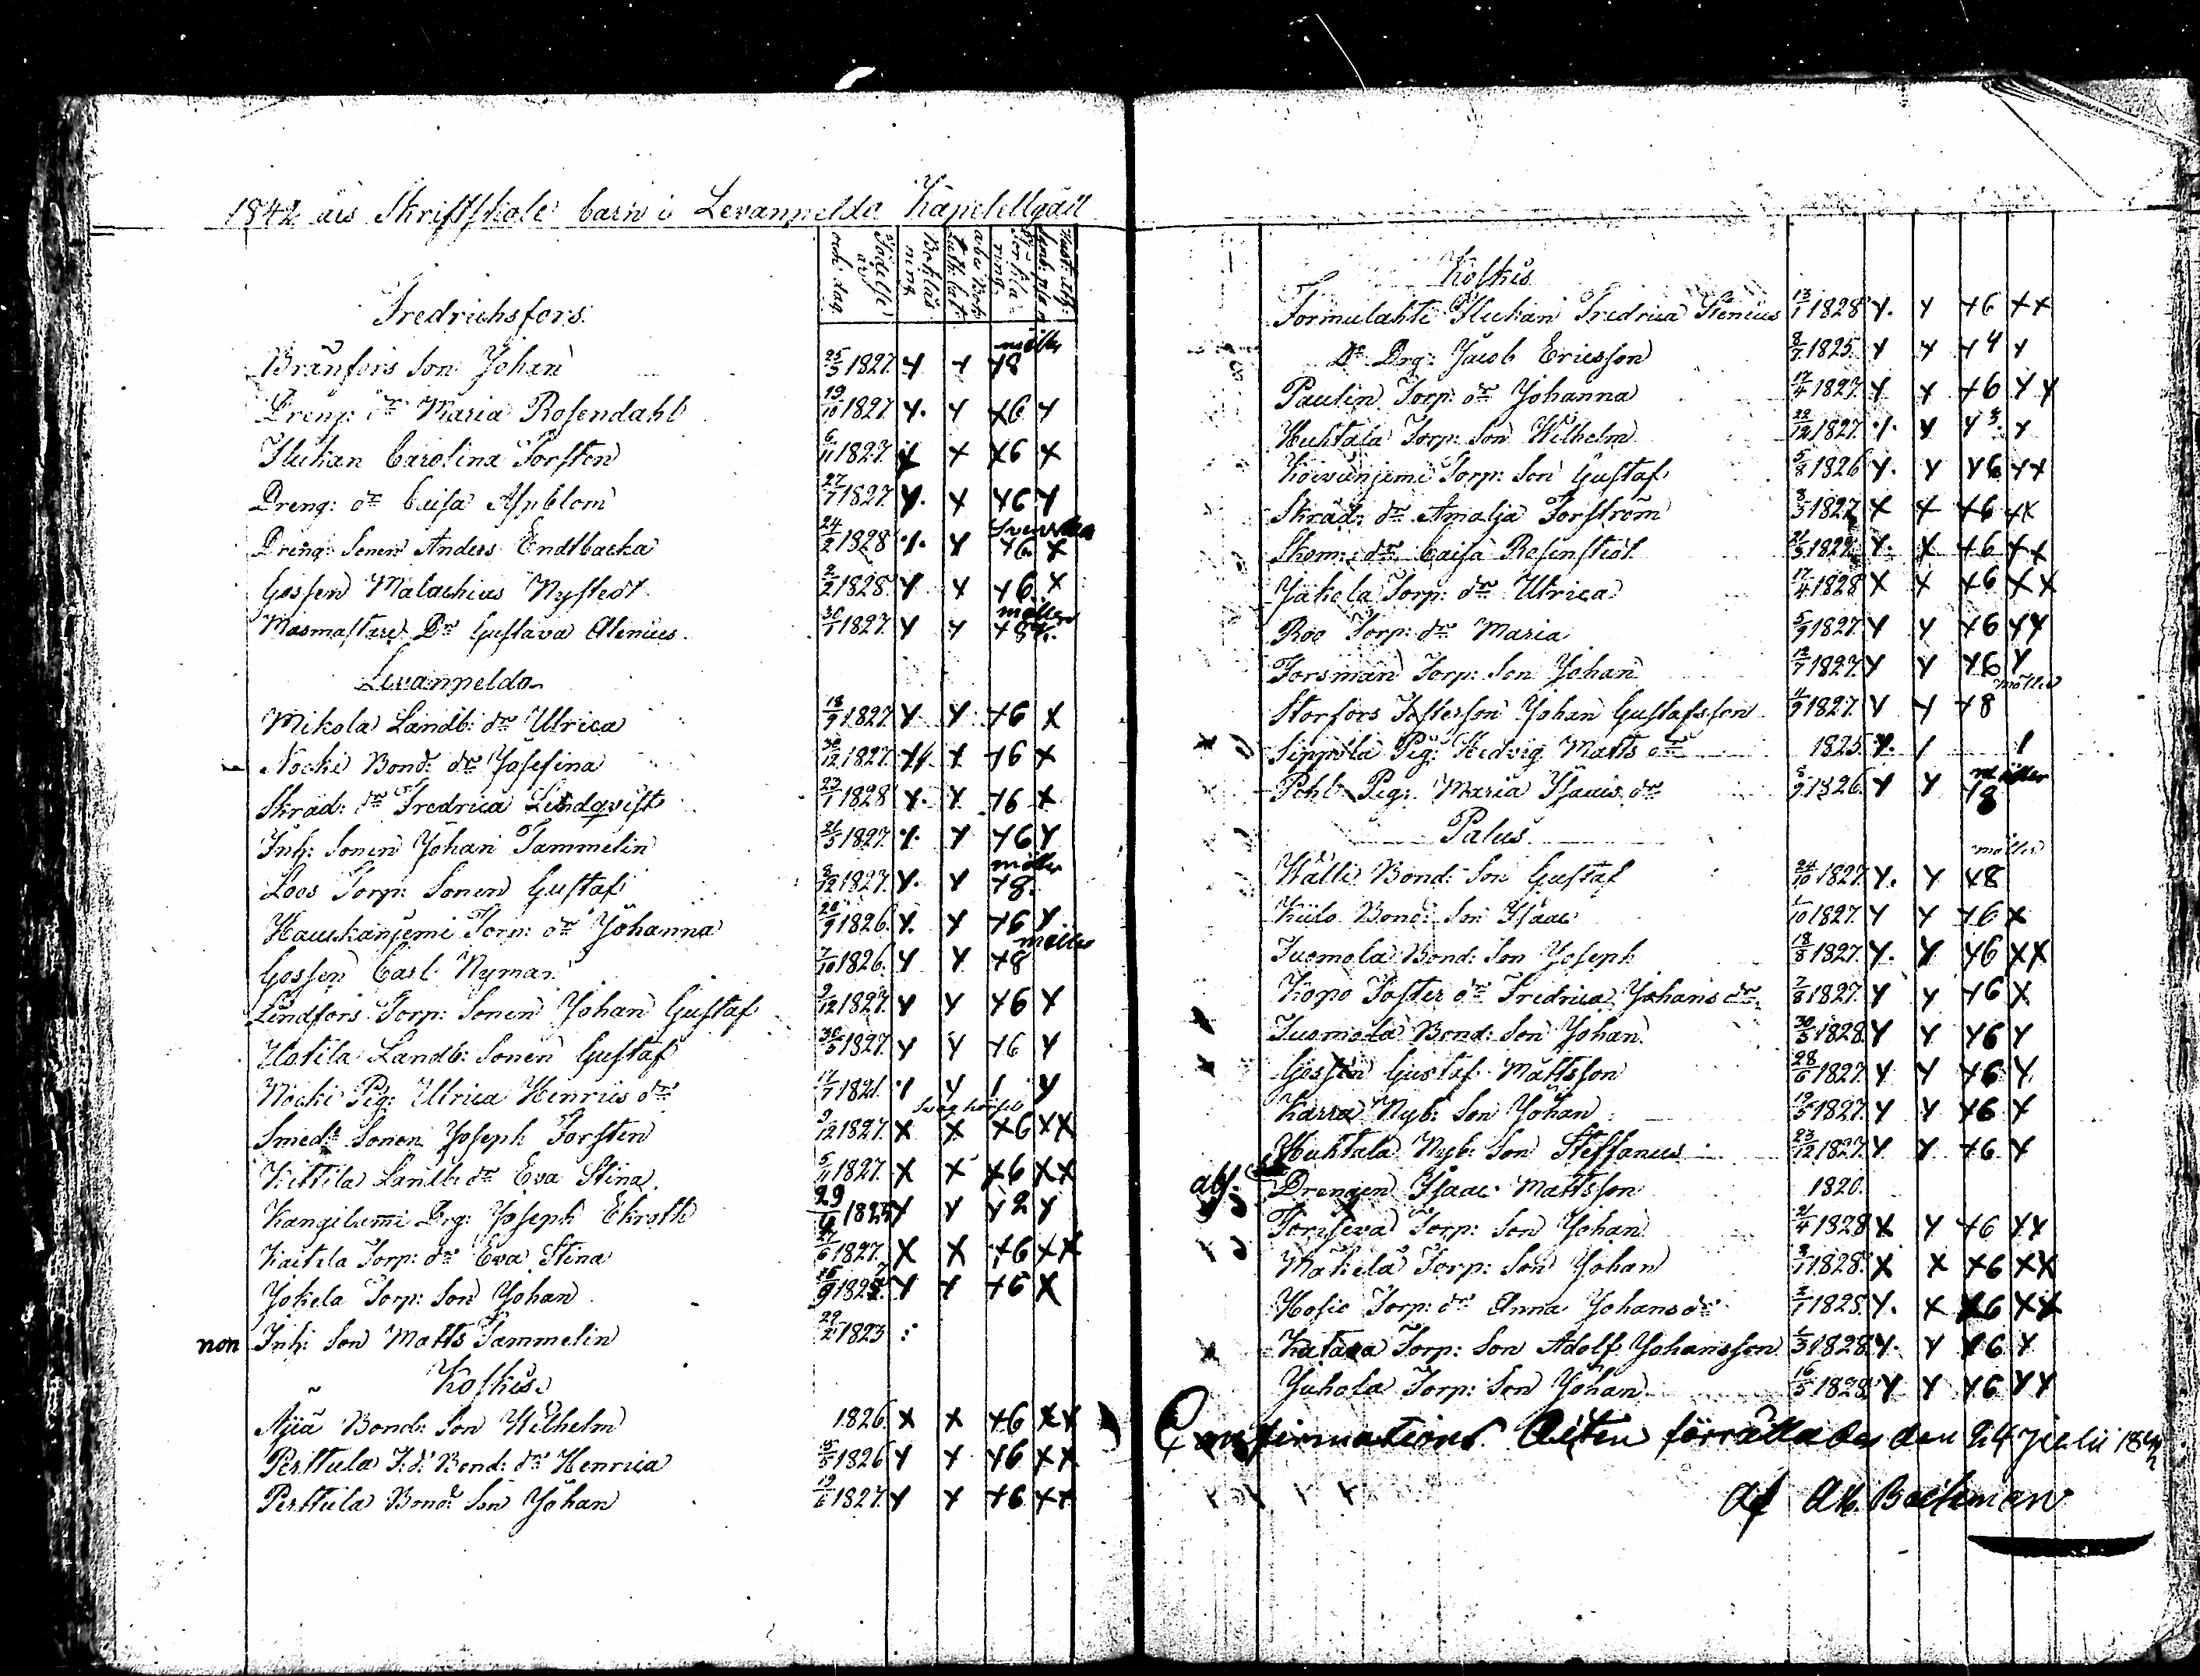 1842 års Skriftskole barn i Levanpelda Kapellgäll
Födelse år och dag
Fredrichsfors.
Brånfors Son Johan 25/3 1827. x x x8 möller
Dreng: dr Maria Rosendahl 19/10 1827 x. x x6 x
Flickan Carolina Forsten 6/11 1827. x x x6 x
Dreng: dr Caisa Aspblom 27/7 1827 x. x x6 x
Dreng: Sonen Anders Endtbacka 24/2 1828 x. x x6. x
Gossen Malachias Nystedt 2/2 1828. x x x6 x
Masmästare Dr Gustava Alenius. 30/1 1827. x x x8 möller
Levanpelda
Mikola Landb: dr Ulrica 18/9 1827 x x x6 x
Nocki Bond: dr Josefina 30/12 1827. x x x6 x
Skräd: dr Fredrica Lindqvist 23/1 1828 x. x x6 x
Inh: Sonen Johan Tammelin 21/3 1827. x. x x6 x
Loos Torp: Sonen Gustaf 8/12 1827. x. x x8. möller
Hauskanjemi Torp: dr Johanna 28/9 1826. x. x x6 x
Gossen Carl Nyman 7/10 1826. x x x8 möller
Lindfors Torp: Sonen Johan Gustaf 9/12 1827. x x x6 x
Uotila Landb: Sonen Gustaf 30/5 1827. x x x6 x
Nocki Pig: Ulrica Henrics dr 17/7 1821. x x 1 x
Smeds Sonen Joseph Forsten 9/12 1827. x x x6 xx
Kittila Landb: dr Eva Stina. 5/11 1827. x x x6 xx
Kangilemi Drg: Joseph Ekroth 29 x x x2 x
Kaitila Torp: dr Eva Stina 27/6 1827. x x x6 xx
Jokela Torp: Son Johan x x x6 x
non Inh: Son Matts Tammelin 29/2 1823 :
Koskis.
Äijä Bond: Son Wilhelm 1826. x x x6 xx
Perttula F.d. Bond: dr Henrica 15/5 1826 x x x6 xx
Perttula Bond: Son Johan 19/6 1827. x x x6 xx
Koskis
Tormulahti Flickan Fredrica Stenius 13/1 1828 x. x x6 xx
Do Drg: Jacob Ericsson 8/7 1825. x x x4 x
Paulin Torp: dr Johanna 17/4 1827. x x x6 xx
Huhtala Torp: Son Wilhelm 22/12 1827. x. x x3 x
Koivunjemi Torp: Son Gustaf 5/8 1826 x. x x6 xx
Skräd: dr Amalja Forström 8/3 1827 x x x6 xx
Skom: dr Caisa Rosenstedt x. x x6 xx
Jakola Torp: dr Ulrica 17/4 1828 x x x6 xx
Roo Torp: dr Maria 5/9 1827. x x x6 xx
Forsman Torp: Son Johan 12/7 1827. x x x6 x
Storfors Fosterson Johan Gustafsson 4/9 1827. x x x8 möller
Seppila Pig: Hedvig Matts dr 1825. x. 1 1
Pohl Pig: Maria Isaacs dr 8/9 1826. x x x8 möller
Palus
Källi Bond: Son Gustaf 24/10 1827. x. x x8 möller
Kulo Bond: Son Isaac 1/10 1827. x x x6 x
Tuomola Bond: Son Joseph 18/8 1827. x. x x6 xx
Kopo Foster dr Fredrica Johans dr 7/8 1827. x x x6 x
Tuomola Bond: Son Johan. 30/3 1828. x x x6 x
Gossen Gustaf Mattsson 28/6 1827. x x x6 x
Karra Nyb: Son Johan 19/5 1827. x x x6 x
Huhtala Nyb: Son Steffanus 23/12 1827. x x x6 x
abs. Drengen Isaac Mattsson 1820.
Toriseva Torp: Son Johan 21/4 1828 x x x6 xx
Makela Torp: Son Johan 3/1 1828. x x x6 xx
Hosio Torp: dr Anna Johans dr 2/1 1828. x. x x6 xx
Katara Torp: Son Adolf Johansson 1/3 1828. x. x x6 x
Juhola Torp: Son Johan. 16/5 1828. x x x6 xx
Confirmations Acten förrättades den 24 Julii 1842
af Ad. Bäckman